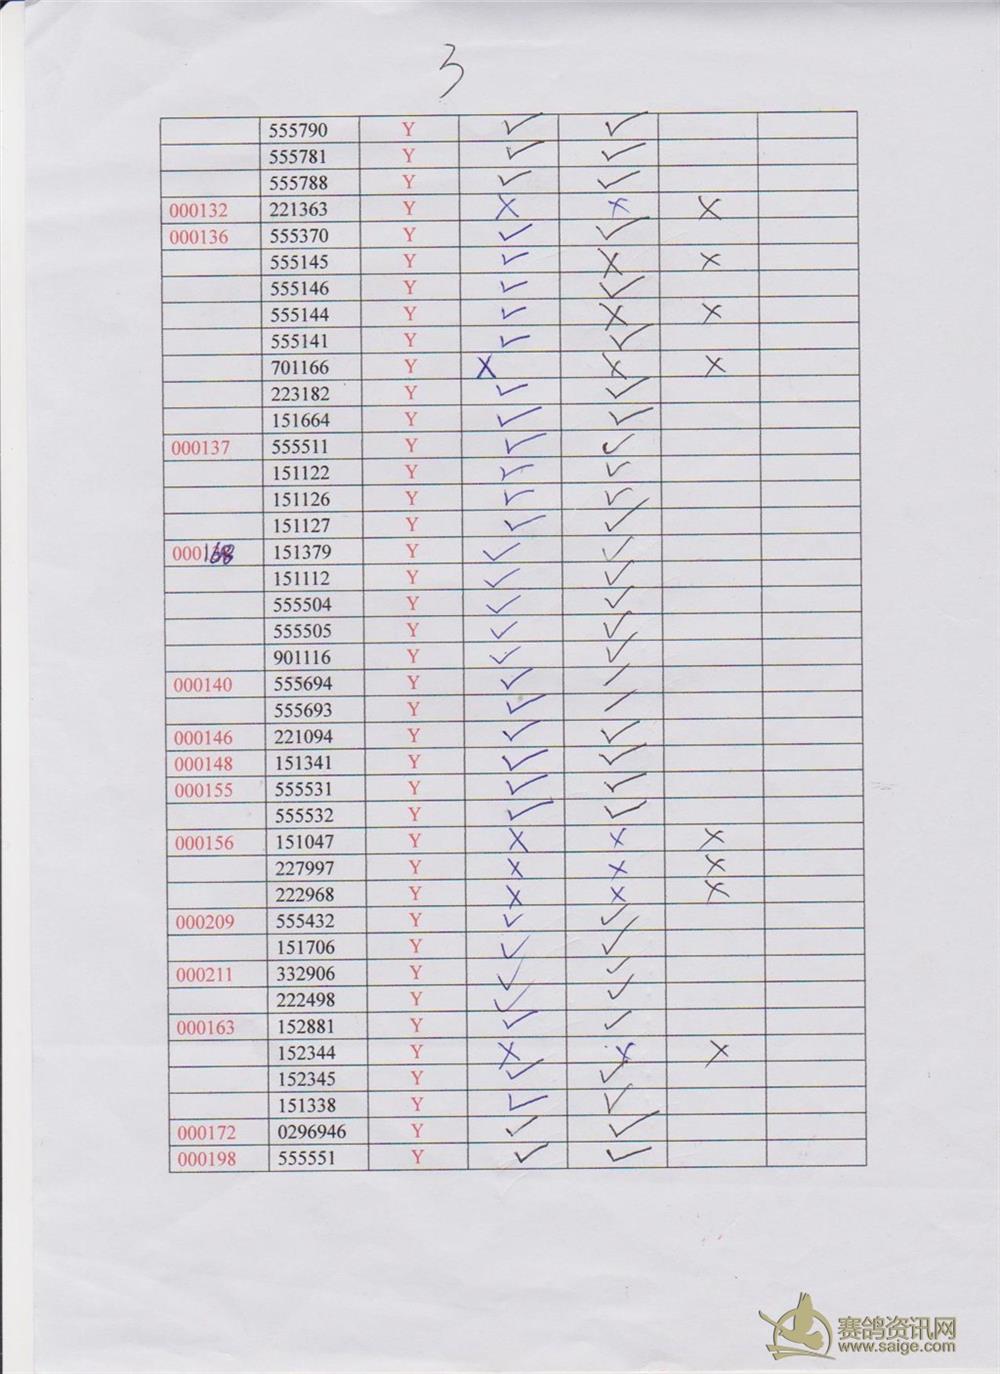 3
555790 Y ✓ ✓
555781 Y ✓ ✓
555788 Y ✓ ✓
000132 221363 Y X X X
000136 555370 Y ✓ ✓
555145 Y ✓ X X
555146 Y ✓ ✓
555144 Y ✓ X X
555141 Y ✓ ✓
701166 Y X X X
223182 Y ✓ ✓
151664 Y ✓ ✓
000137 555511 Y ✓ ✓
151122 Y ✓ ✓
151126 Y ✓ ✓
151127 Y ✓ ✓
151379 Y ✓ ✓
151112 Y ✓ ✓
555504 Y ✓ ✓
555505 Y ✓ ✓
901116 Y ✓ ✓
000140 555694 Y ✓ /
555693 Y ✓ /
000146 221094 Y ✓ ✓
000148 151341 Y ✓ ✓
000155 555531 Y ✓ ✓
555532 Y ✓ ✓
000156 151047 Y X X X
227997 Y X X X
222968 Y X X X
000209 555432 Y ✓ ✓
151706 Y ✓ ✓
000211 332906 Y ✓ ✓
222498 Y ✓ ✓
000163 152881 Y ✓ ✓
152344 Y X X X
152345 Y ✓ ✓
151338 Y ✓ ✓
000172 0296946 Y ✓ ✓
000198 555551 Y ✓ ✓
赛鸽资讯网
www.saige.com